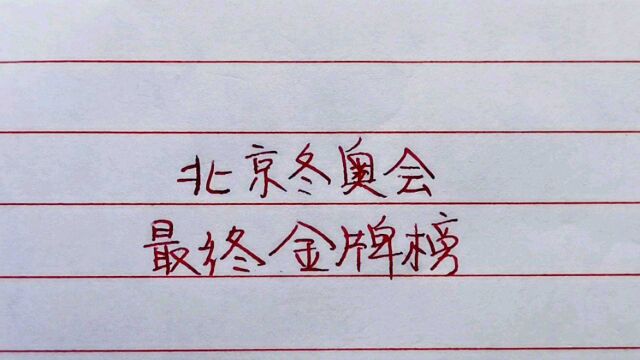 北京冬奥会
最终金牌榜